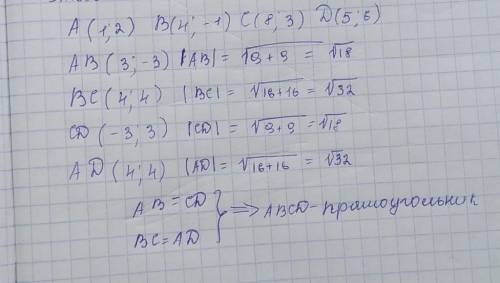 A(1;2) B(4;-1) C(8;3) D(5;6)
AB(3;-3) |AB| = √9+9 = √18
BC(4;4) |BC| = √16+16 = √32
CD(-3;3) |CD| = √9+9 = √18
AD(4;4) |AD| = √16+16 = √32
AB=CD
BC=AD } ⟹ ABCD-прямоугольник